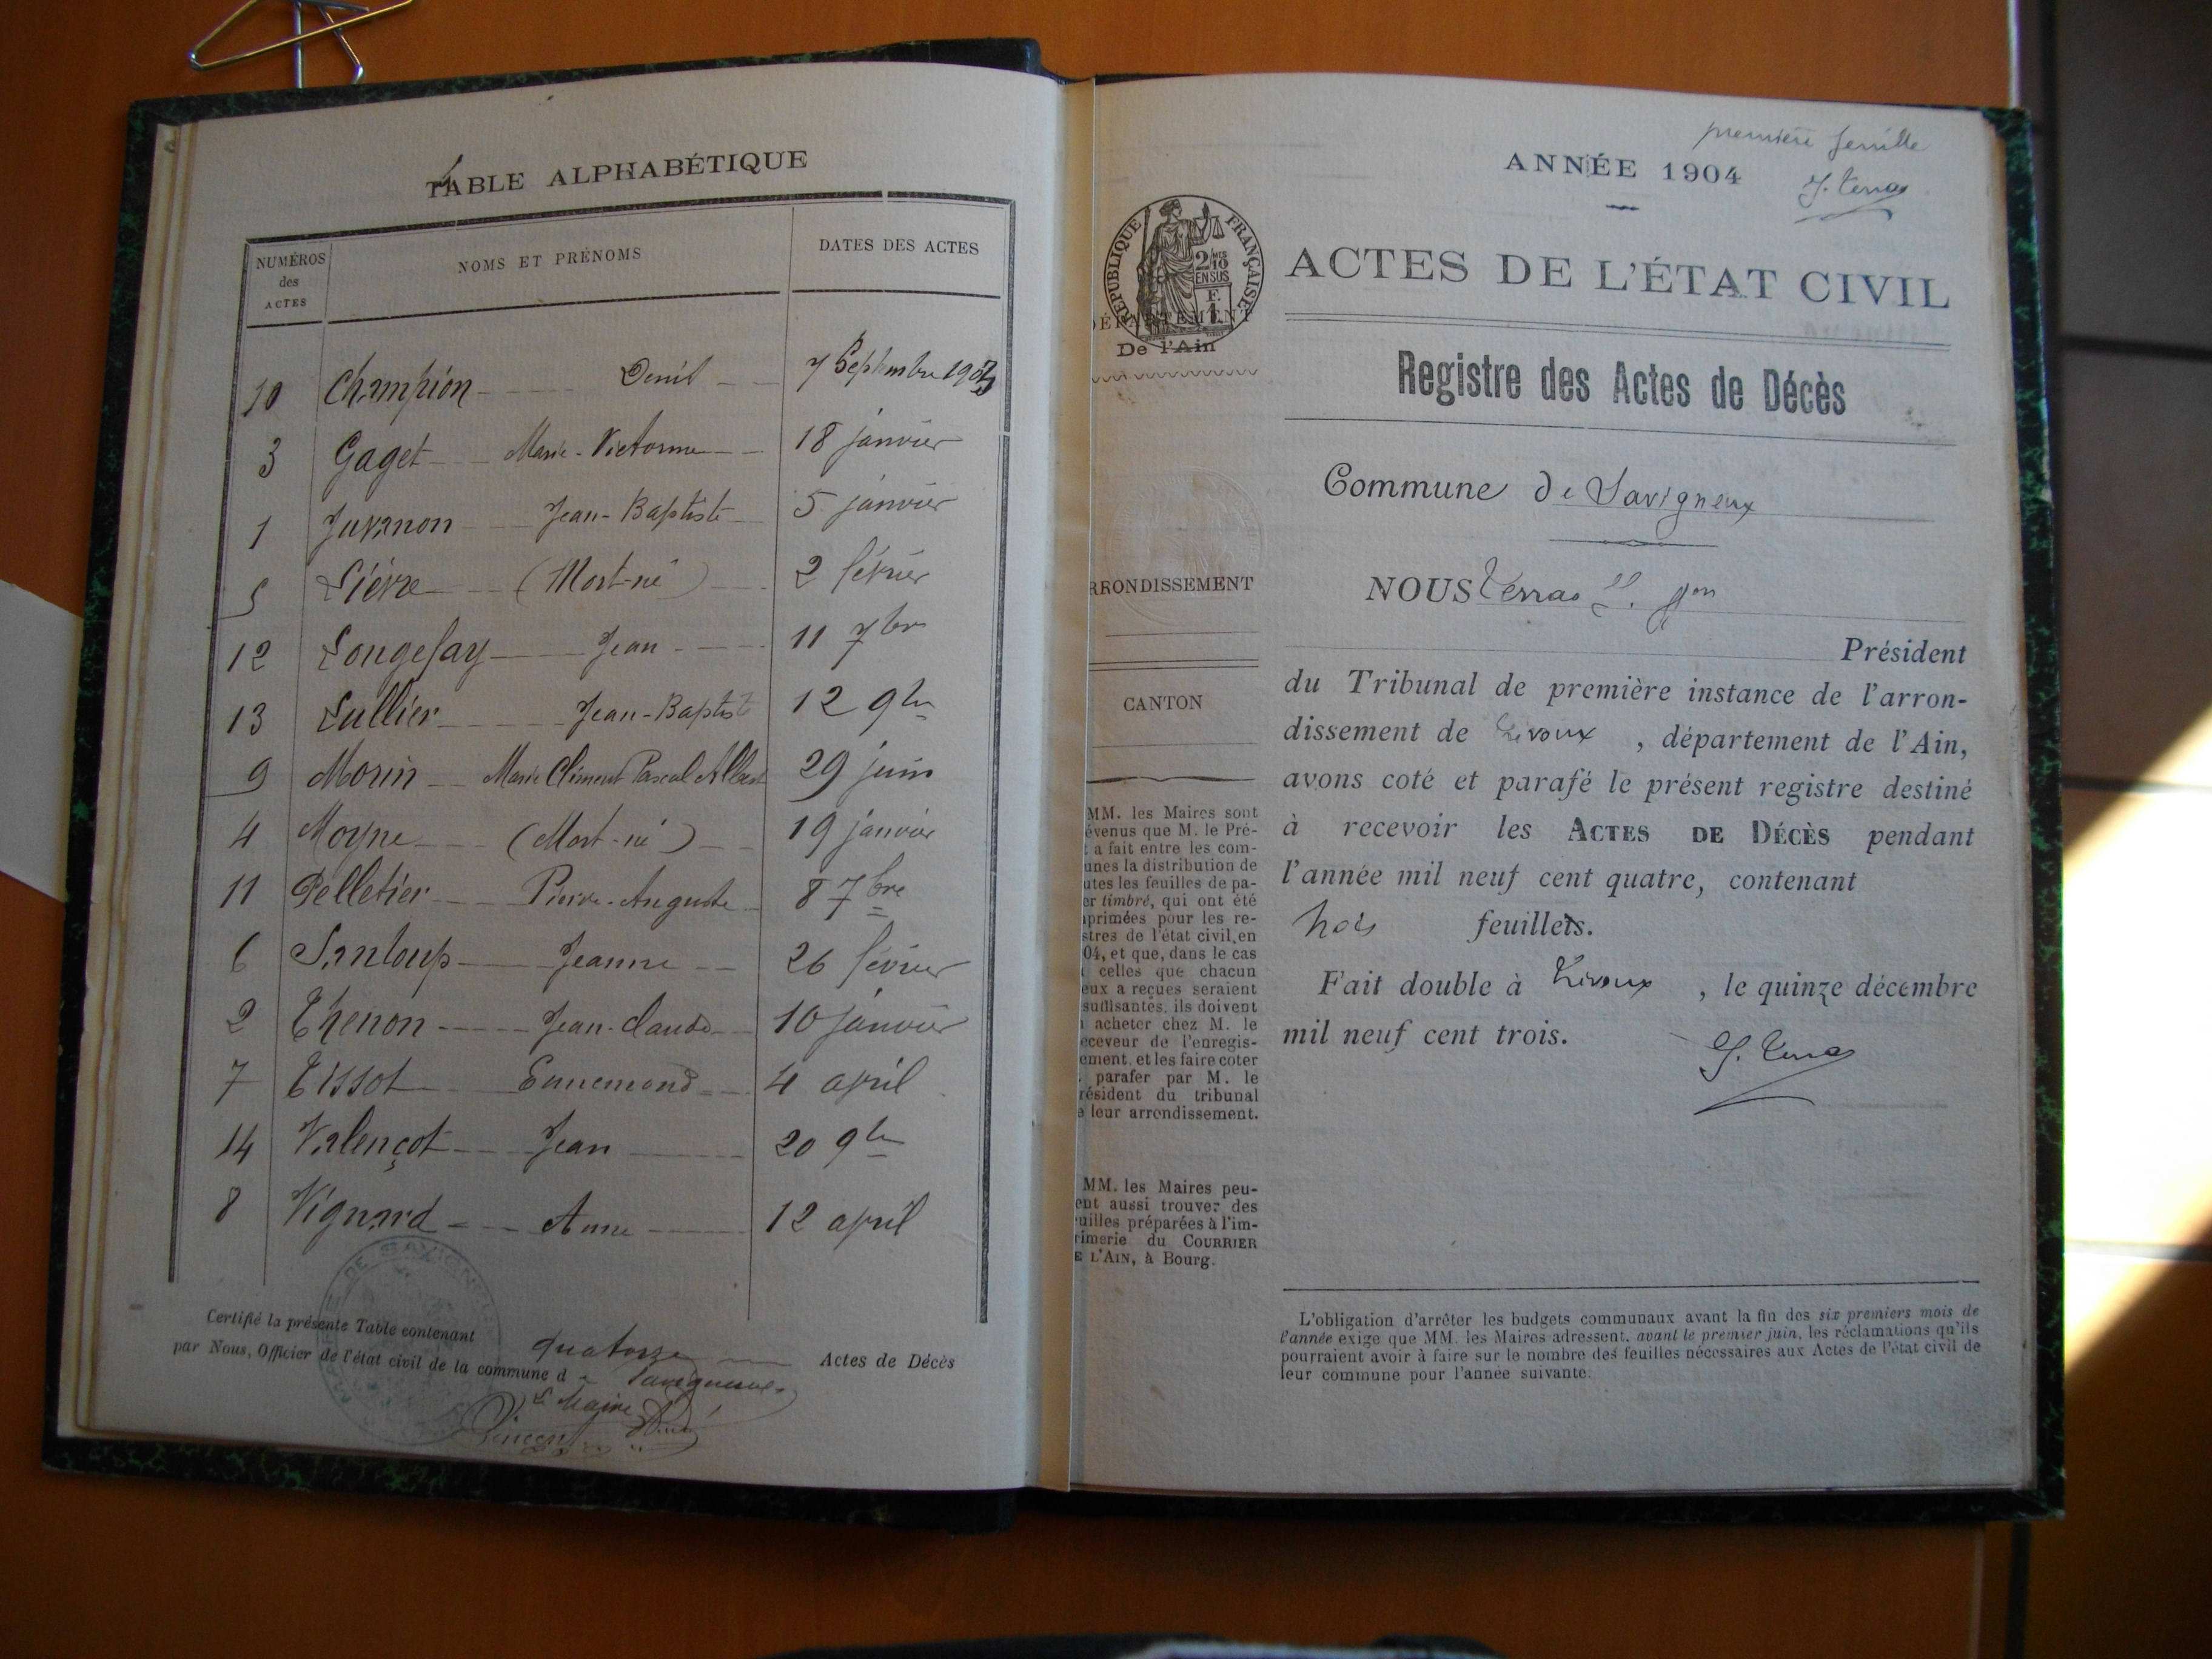 TABLE ALPHABÉTIQUE
NUMÉROS des ACTES NOMS ET PRÉNOMS DATES DES ACTES
10 Champion Denis 7 Septembre 1903
3 Gaget Marie-Victorine 18 janvier
1 Juvanon Jean-Baptiste 5 janvier
5 Lièvre (Mort-né) 2 février
12 Longefay Jean 11 7bre
13 Lullier Jean-Baptiste 12 9bre
9 Morin Marie Clément Pascal Albert 29 juin
4 Moyne (Mort-né) 19 janvier
11 Pelletier Pierre-Auguste 8 7bre
6 Sanloup Jeanne 26 février
2 Thenon Jean-Claude 10 janvier
7 Tissot Ennemond 4 april
14 Valençot Jean 20 9bre
8 Vignard Anne 12 april
Certifié la présente Table contenant quatorze Actes de Décès
par Nous, Officier de l'état civil de la commune de Savigneux
Le Maire
Vincent
première feuille
ANNÉE 1904
RÉPUBLIQUE FRANÇAISE
2/10 EN SUS
ACTES DE L'ÉTAT CIVIL
DÉPARTEMENT
De l'Ain
Registre des Actes de Décès
Commune de Savigneux
RRONDISSEMENT
NOUS Terras
Président
CANTON
du Tribunal de première instance de l'arron-
dissement de Trévoux, département de l'Ain,
avons coté et parafé le présent registre destiné
à recevoir les ACTES DE DÉCÈS pendant
l'année mil neuf cent quatre, contenant
trois feuillets.
Fait double à Trévoux, le quinze décembre
mil neuf cent trois.
MM. les Maires sont
évenus que M. le Pré-
t a fait entre les com-
unes la distribution de
utes les feuilles de pa-
er timbré, qui ont été
primées pour les re-
stres de l'état civil, en
04, et que, dans le cas
celles que chacun
eux a reçues seraient
suffisantes, ils doivent
acheter chez M. le
eceveur de l'enregis-
ement, et les faire coter
parafer par M. le
résident du tribunal
e leur arrondissement.
MM. les Maires peu-
ent aussi trouver des
uilles préparées à l'im-
rimerie du COURRIER
E L'AIN, à Bourg.
L'obligation d'arrêter les budgets communaux avant la fin des six premiers mois de
l'année exige que MM. les Maires adressent, avant le premier juin, les réclamations qu'ils
pourraient avoir à faire sur le nombre des feuilles nécessaires aux Actes de l'état civil de
leur commune pour l'année suivante.